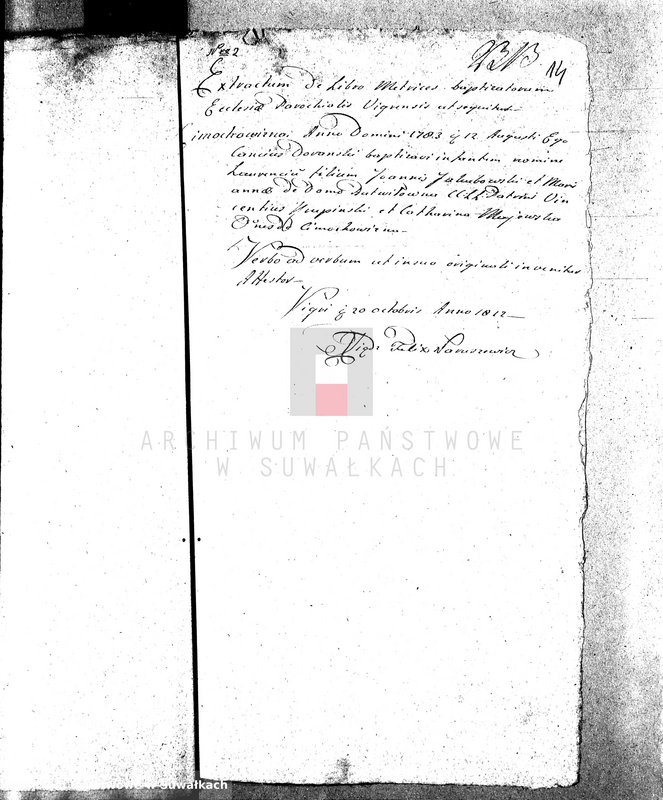 No 2
14
Extractum de Libro Metrices baptizatorum
Ecclesiæ Parochialis Vigrensis ut sequitur
Cimochowizna. Anno Domini 1783 12 Augusti Ego
baptizavi infantem nomine
Laurenciu filium Joannis Jakubowski et Mari
annæ de Domo Butwiłowna Patrini Vin
centius Krupinski et Catharina Majewska
Cimochowizna
Verbo ad verbum ut in suo originali invenitur
Attestor
Vigri 20 octobris Anno 1812
Felix Naruszewicz
ARCHIWUM PAŃSTWOWE
W SUWAŁKACH
w Suwałkach